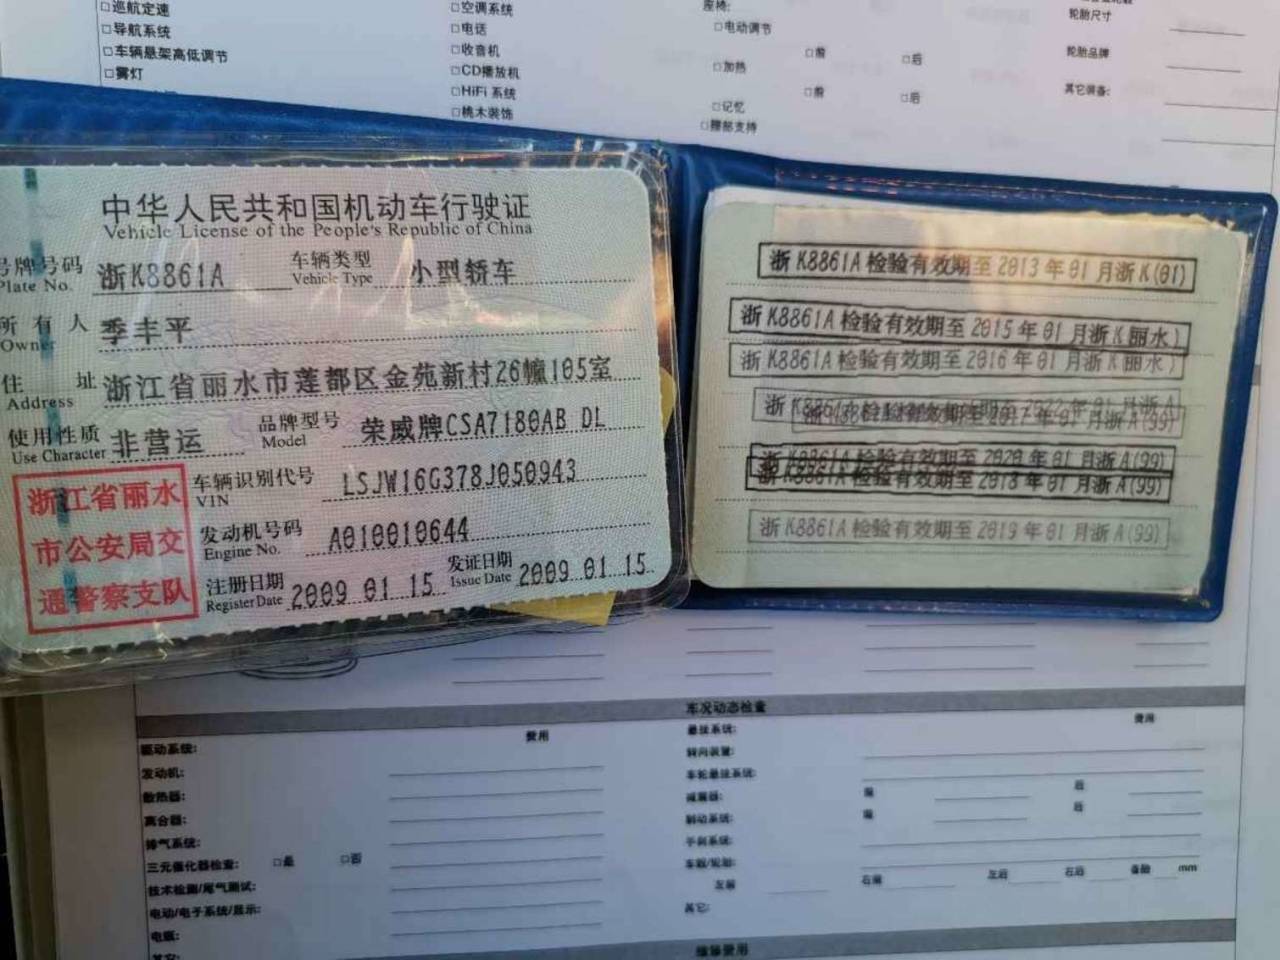 □巡航定速
□导航系统
□车辆悬架高低调节
□雾灯
□空调系统
□电话
□收音机
□CD播放机
□HiFi 系统
□桃木装饰
座椅:
□电动调节
□前 □后
□加热
□前 □后
□记忆
□腰部支持
轮胎尺寸
轮胎品牌
其它装备:
中华人民共和国机动车行驶证
Vehicle License of the People's Republic of China
号牌号码 浙K8861A 车辆类型 小型轿车
Plate No. Vehicle Type
所有人 季丰平
Owner
住址 浙江省丽水市莲都区金苑新村26幢105室
Address
使用性质 非营运 品牌型号 荣威牌CSA7180AB DL
Use Character Model
浙江省丽水
市公安局交
通警察支队
车辆识别代号 LSJW16G378J050943
VIN
发动机号码 A010010644
Engine No.
注册日期 2009 01 15 发证日期 2009 01 15
Register Date Issue Date
浙K8861A检验有效期至2013年01月浙K(01)
浙K8861A检验有效期至2015年01月浙K(丽水)
浙K8861A检验有效期至2016年01月浙K(丽水)
浙K8861A检验有效期至2017年01月浙A(99)
浙K8861A检验有效期至2020年01月浙A(99)
浙K8861A检验有效期至2018年01月浙A(99)
浙K8861A检验有效期至2019年01月浙A(99)
车况动态检查
费用 费用
驱动系统:
发动机:
散热器:
离合器:
排气系统:
三元催化器检查: □是 □否
技术检测/尾气测试:
电动/电子系统/显示:
电瓶:
其它:
悬挂系统:
转向装置:
车轮悬挂系统:
减震器:
制动系统:
手刹系统:
车胎/轮胎:
左前 右前 左后 右后 备胎 mm
其它:
维修费用